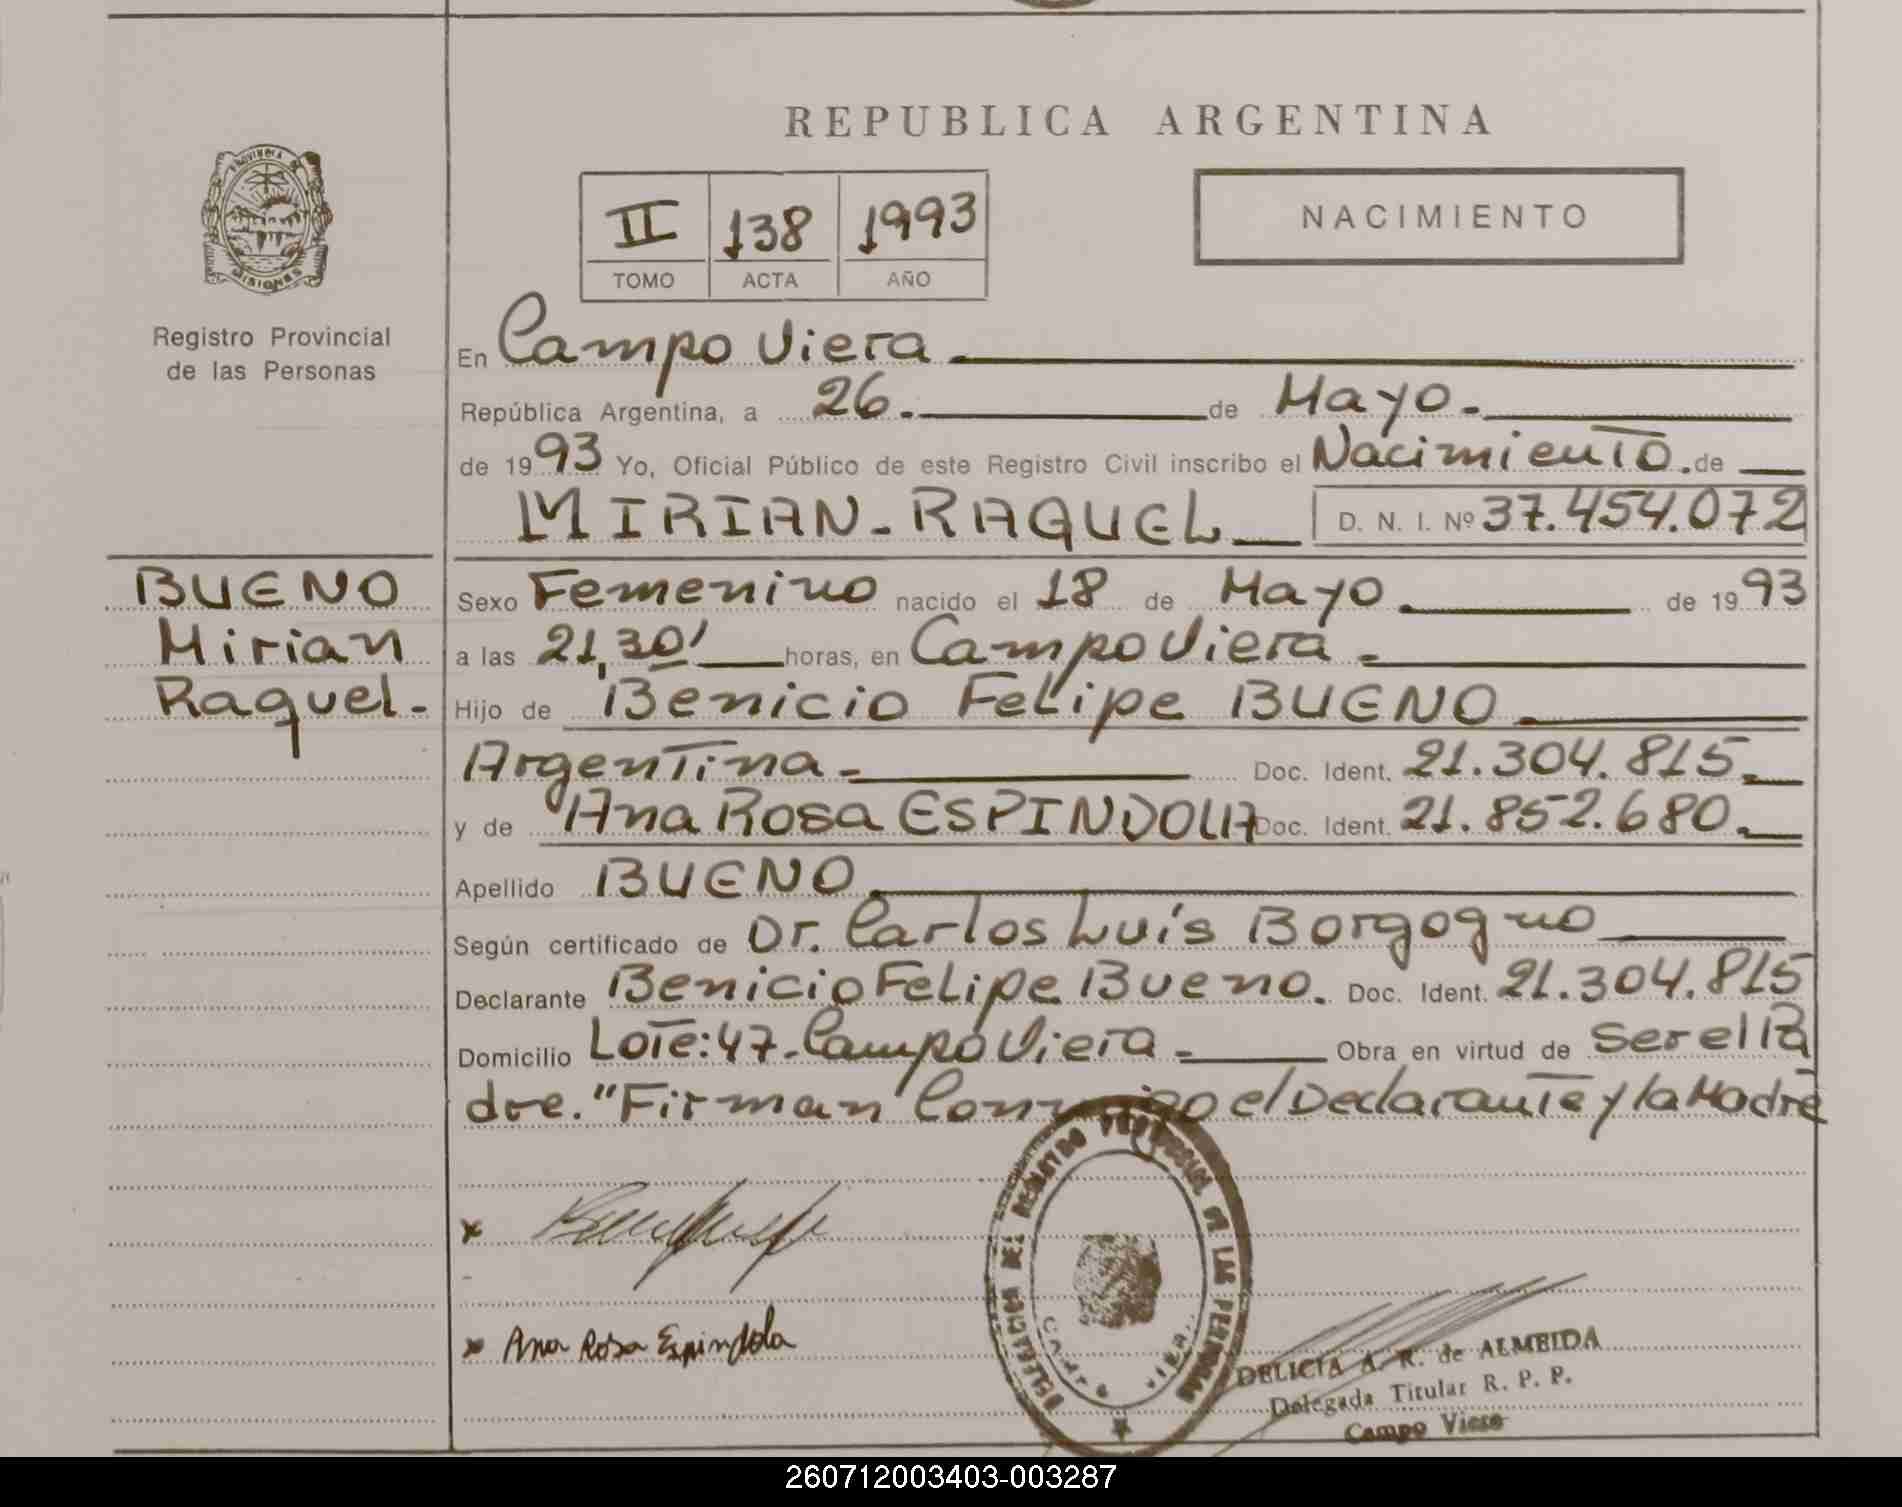 REPUBLICA ARGENTINA
PROVINCIA DE
MISIONES
Registro Provincial
de las Personas
II 138 1993
TOMO ACTA AÑO
NACIMIENTO
En Campo Viera.
República Argentina, a 26. de Mayo.
de 1993 Yo, Oficial Público de este Registro Civil inscribo el Nacimiento. de
MIRIAN-RAQUEL D. N. I. Nº 37.454.072
BUENO
Mirian
Raquel.
Sexo Femenino nacido el 18 de Mayo. de 1993
a las 21,30' horas, en Campo Viera.
Hijo de Benicio Felipe BUENO
Argentina. Doc. Ident. 21.304.815.
y de Ana Rosa ESPINDOLA Doc. Ident. 21.852.680.
Apellido BUENO.
Según certificado de Dr. Carlos Luís Borgogno
Declarante Benicio Felipe Bueno. Doc. Ident. 21.304.815
Domicilio Lote: 47. Campo Viera. Obra en virtud de Ser el Pa
dre. "Firman Conmigo el Declarante y la Madre
x
x Ana Rosa Espindola
DELEGACION DEL REGISTRO PROVINCIAL DE LAS PERSONAS
CAMPO VIERA
DELICIA A. R. de ALMEIDA
Delegada Titular R. P. P.
Campo Viera
260712003403-003287